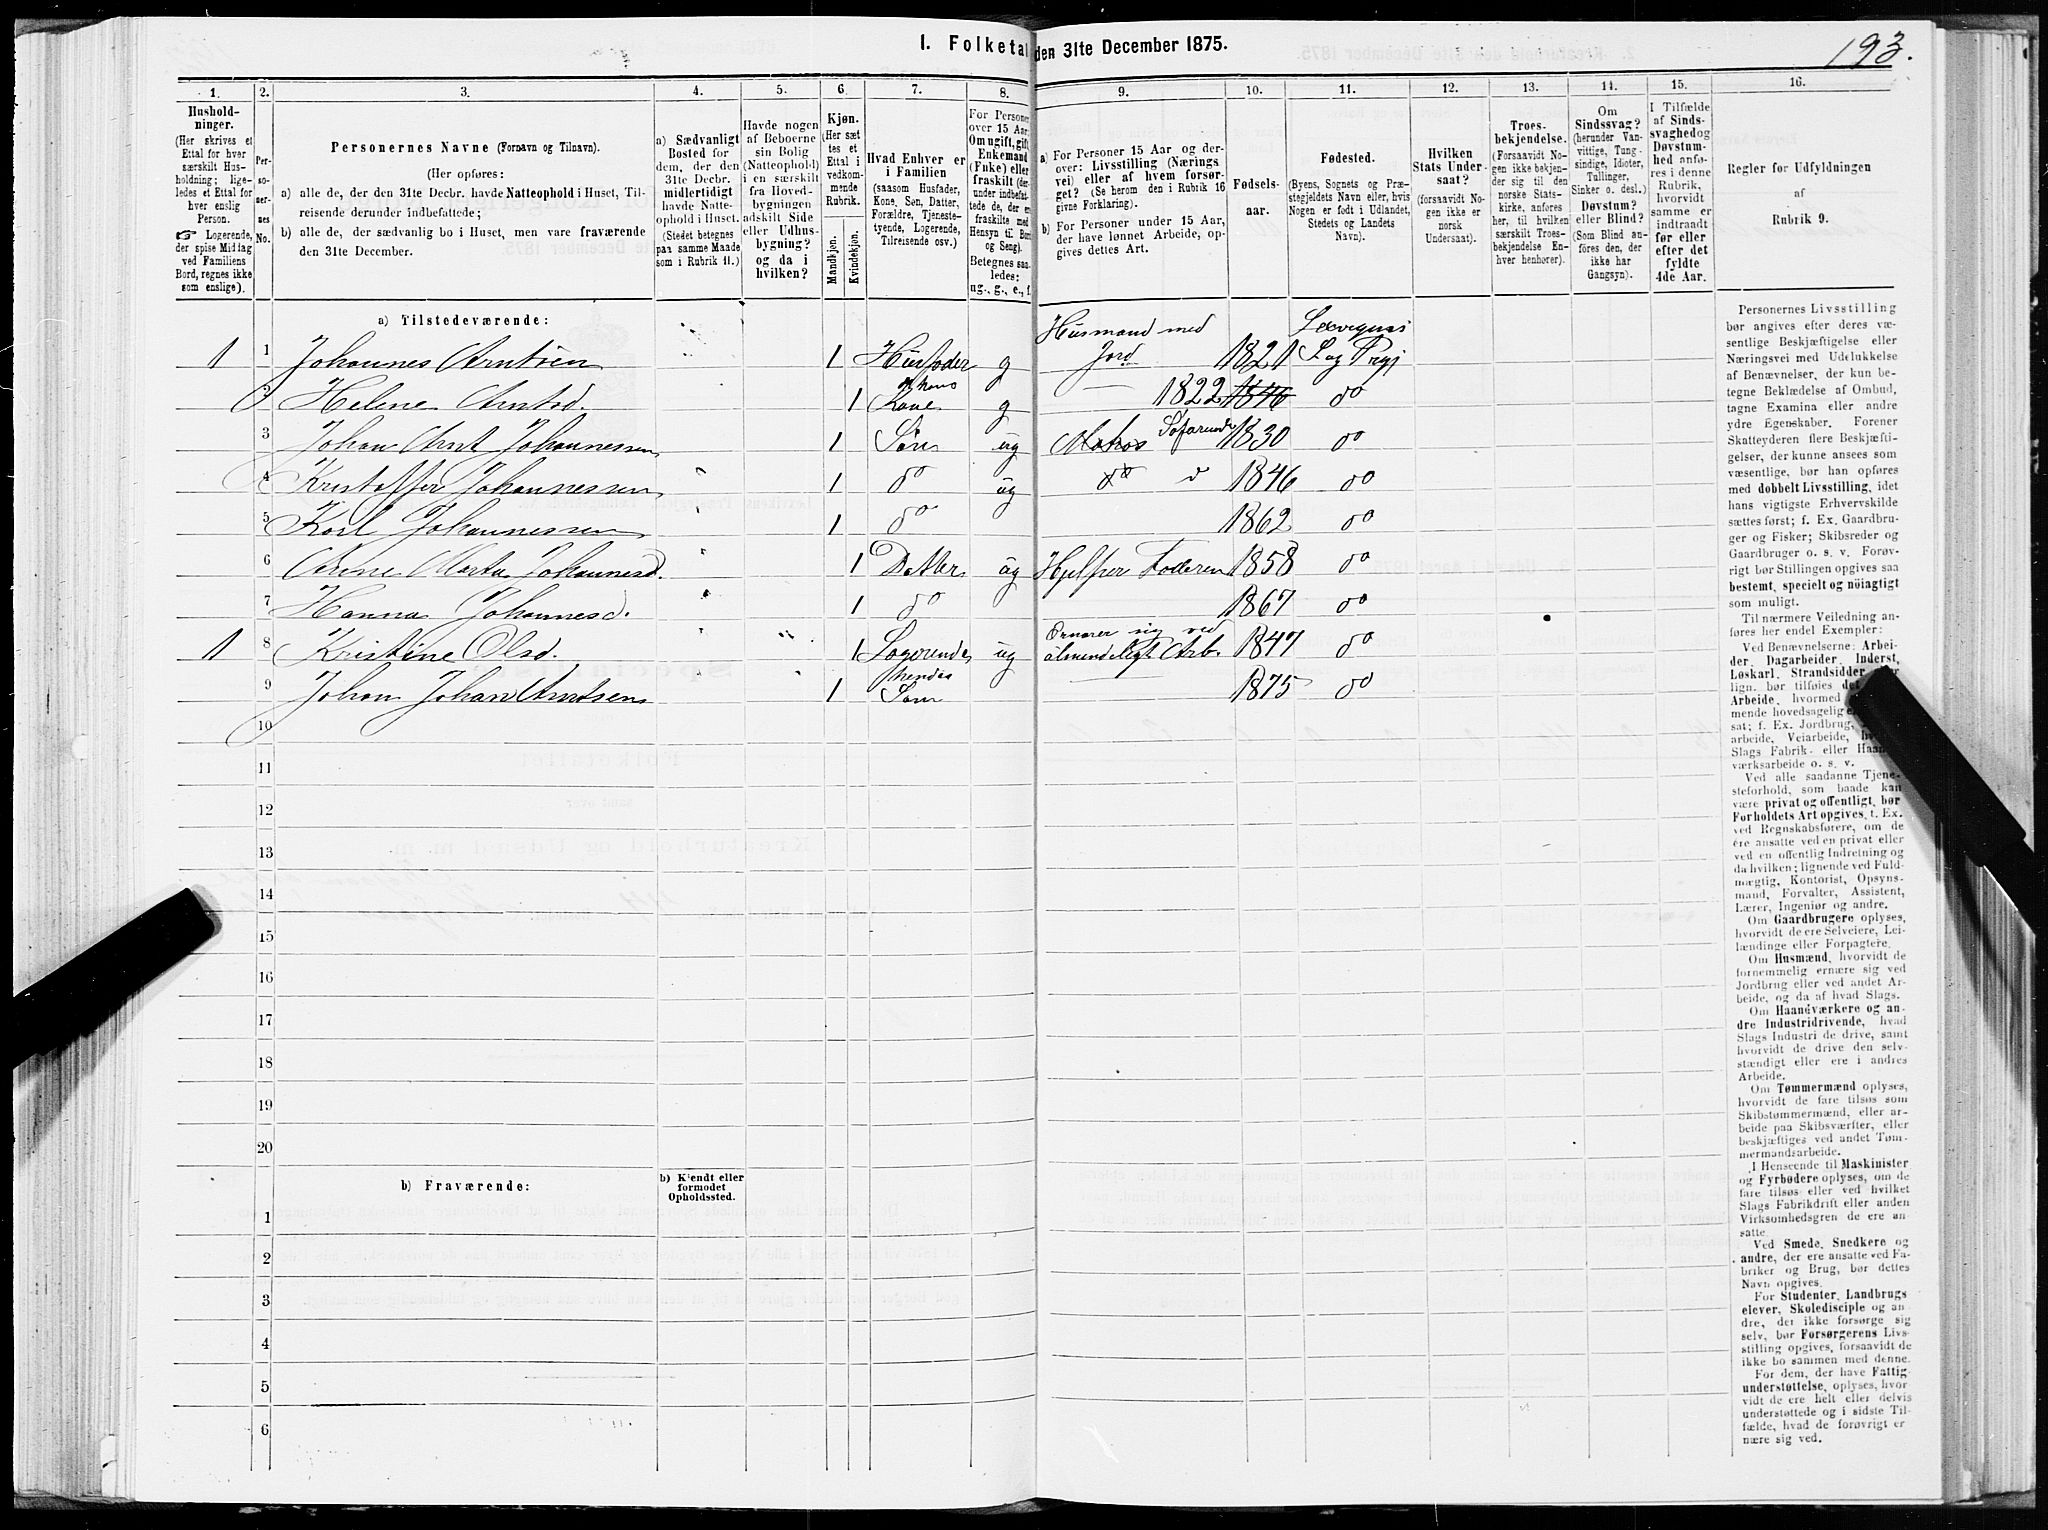 I. Folketal den 31te December 1875.
193.
1. 2. 3. 4. 5. 6. 7. 8. 9. 10. 11. 12. 13. 14. 15. 16.
Hushold-
ninger.
(Her skrives et
Ettal for hver
særskilt Hus-
holdning; lige-
ledes et Ettal for
hver enslig
Person.
☞ Logerende,
der spise Middag
ved Familiens
Bord, regnes ikke
som enslige).
Per-
so-
ner-
nes
No.
Personernes Navne (Fornavn og Tilnavn).
(Her opføres:
a) alle de, der den 31te Decbr. havde Natteophold i Huset, Til-
reisende derunder indbefattede;
b) alle de, der sædvanlig bo i Huset, men vare fraværende
den 31te December.
a) Sædvanligt
Bosted for
dem, der den
31te Decbr.
midlertidigt
havde Natte-
ophold i Huset.
(Stedet betegnes
paa samme Maade
som i Rubrik 11.)
Havde nogen
af Beboerne
sin Bolig
(Natteophold)
i en særskilt
fra Hoved-
bygningen
adskilt Side
eller Udhus-
bygning?
og da i
hvilken?
Kjøn.
(Her sæt
tes et
Ettal i
vedkom-
mende
Rubrik.
Mandkjøn.
Kvindekjøn.
Hvad Enhver er
i Familien
(saasom Husfader,
Kone, Søn, Datter,
Forældre, Tjeneste-
tyende, Logerende,
Tilreisende osv.)
For Personer
over 15 Aar:
Om ugift, gift,
Enkemand
(Enke) eller
fraskilt (der-
under indbefat-
tede de, der er
fraskilte med
Hensyn til Bord
og Seng).
Betegnes saa-
ledes:
ug., g., e., f.
a) For Personer 15 Aar og der-
over: Livsstilling (Nærings
vei) eller af hvem forsør-
get? (Se herom den i Rubrik 16
givne Forklaring).
b) For Personer under 15 Aar,
der have lønnet Arbeide, op-
gives dettes Art.
Fødsels-
aar.
Fødested.
(Byens, Sognets og Præ-
stegjeldets Navn eller, hvis
Nogen er født i Udlandet,
Stedets og Landets
Navn).
Hvilken
Stats Under-
saat?
(forsaavidt No-
gen ikke er
norsk
Undersaat).
Troes-
bekjendelse.
(Forsaavidt No-
gen ikke bekjen-
der sig til den
norske Stats-
kirke, anføres
her, til hvilken
særskilt Troes-
bekjendelse En-
hver henhører).
Om
Sindssvag?
(herunder Van-
vittige, Tung-
sindige, Idioter,
Tullinger,
Sinker o. desl.)
Døvstum?
eller Blind?
(Som Blind an-
føres den, der
ikke har
Gangsyn).
I Tilfælde
af Sinds-
svaghed og
Døvstum-
hed anfø-
res i denne
Rubrik,
hvorvidt
samme er
indtraadt
før eller
efter det
fyldte
4de Aar.
Regler for Udfyldningen
af
Rubrik 9.
a) Tilstedeværende:
1 1 Johannes Arntsen 1 Husfader g Husmand med Jord 1821 Lexvigens S og Prgj
2 Helene Arntsd. 1 Hans Kone g 1822 1846 do
3 Johan Arnt Johannessen 1 Søn ug Matros Søfarende 1830 do
4 Kristoffer Johannessen 1 do ug do 1846 do
5 Karl Johannessen 1 do 1862 do
6 Arene Marta Johannesd. 1 Datter ug Hjelper Faderen 1858 do
7 Hanna Johannesd. 1 do 1867 do
1 8 Kristine Olsd. 1 Logerende ug Ernærer sig ved almindeligt Arb. 1847 do
9 Johan Johan Arntsen 1 hendes Søn 1875 do
10
11
12
13
14
15
16
17
18
19
20
b) Fraværende:
b) Kjendt eller
formodet
Opholdssted.
1
2
3
4
5
6
Personernes Livsstilling
bør angives efter deres væ-
sentlige Beskjæftigelse eller
Næringsvei med Udelukkelse
af Benævnelser, der kun be-
tegne Beklædelse af Ombud,
tagne Examina eller andre
ydre Egenskaber. Forener
Skatteyderen flere Beskjæfti-
gelser, der kunne ansees som
væsentlige, bør han opføres
med dobbelt Livsstilling, idet
hans vigtigste Erhvervskilde
sættes først; f. Ex. Gaardbru-
ger og Fisker; Skibsreder og
Gaardbruger o. s. v. Forøv-
rigt bør Stillingen opgives saa
bestemt, specielt og nöiagtigt
som muligt.
Til nærmere Veiledning an-
føres her endel Exempler:
Ved Benævnelserne: Arbei-
der, Dagarbeider, Inderst,
Løskarl, Strandsidder eller
lign. bør tilføies det
Arbeide, hvormed
mende hovedsagelig
sat; f. Ex. Jordbrug,
arbeide, Veiarbeide,
Slags Fabrik- eller Haand-
værksarbeide o. s. v.
Ved alle saadanne Tjene-
steforhold, som baade kan
være privat og offentligt, bør
Forholdets Art opgives, f. Ex.
ved Regnskabsførere, om de
ere ansatte ved en privat eller
ved en offentlig Indretning og
da hvilken; lignende ved Fuld-
mægtig, Kontorist, Opsyns-
mand, Forvalter, Assistent,
Lærer, Ingeniør og andre.
Om Gaardbrugere oplyses,
hvorvidt de ere Selveiere, Lei-
lændinge eller Forpagtere.
Om Husmænd, hvorvidt de
fornemmelig ernære sig ved
Jordbrug eller ved andet Ar-
beide, og da af hvad Slags.
Om Haandværkere og an-
dre Industridrivende, hvad
Slags Industri de drive, samt
hvorvidt de drive den selv-
stændigt eller ere i andres
Arbeide.
Om Tømmermænd oplyses,
hvorvidt de fare tilsøs som
Skibstømmermænd, eller ar-
beide paa Skibsværfter, eller
beskjæftiges ved andet Tøm-
mermandsarbeide.
I Henseende til Maskinister
og Fyrbødere oplyses, om de
fare tilsøs eller ved hvilket
Slags Fabrikdrift eller anden
Virksomhedsgren de ere an-
satte.
Ved Smede, Snedkere og
andre, der ere ansatte ved Fa-
briker og Brug, bør dettes
Navn opgives.
For Studenter, Landbrugs
elever, Skoledisciple og an-
dre, der ikke forsørge sig
selv, bør Forsørgerens Livs-
stilling opgives, forsaavidt de
ikke bo sammen med denne.
For dem, der have Fattig-
understøttelse, oplyses, hvor-
vidt de ere helt eller delvis
understøttede og i sidste Til-
fælde, hvad de forøvrigt er
nære sig ved.